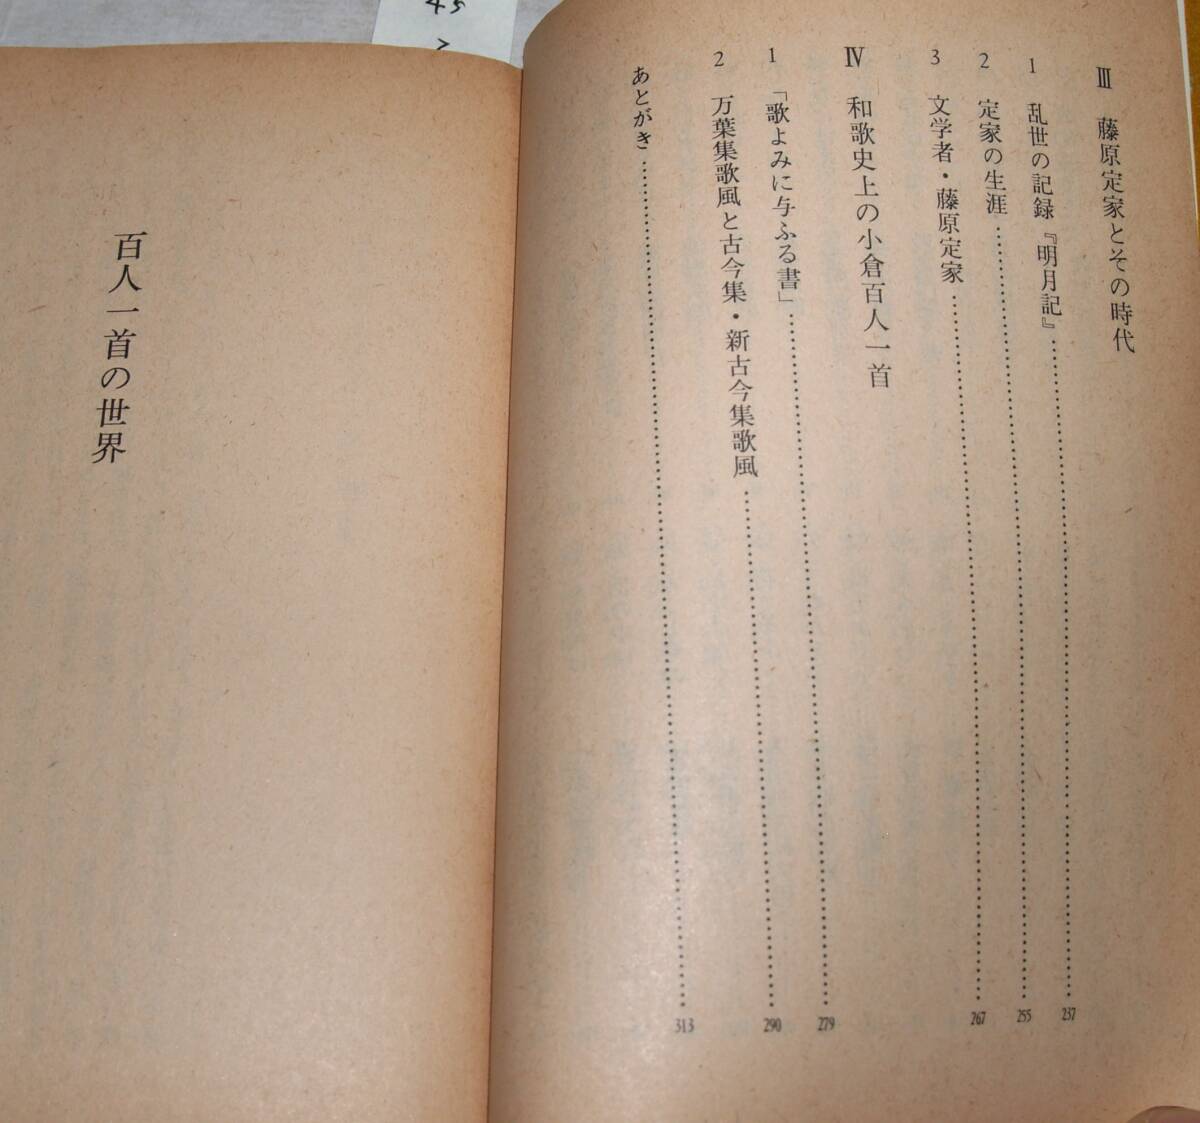 Ⅲ 藤原定家とその時代
1 乱世の記録『明月記』……237
2 定家の生涯……255
3 文学者・藤原定家……267
Ⅳ 和歌史上の小倉百人一首
1 「歌よみに与ふる書」……279
2 万葉集歌風と古今集・新古今集歌風……290
あとがき……313
百人一首の世界
45